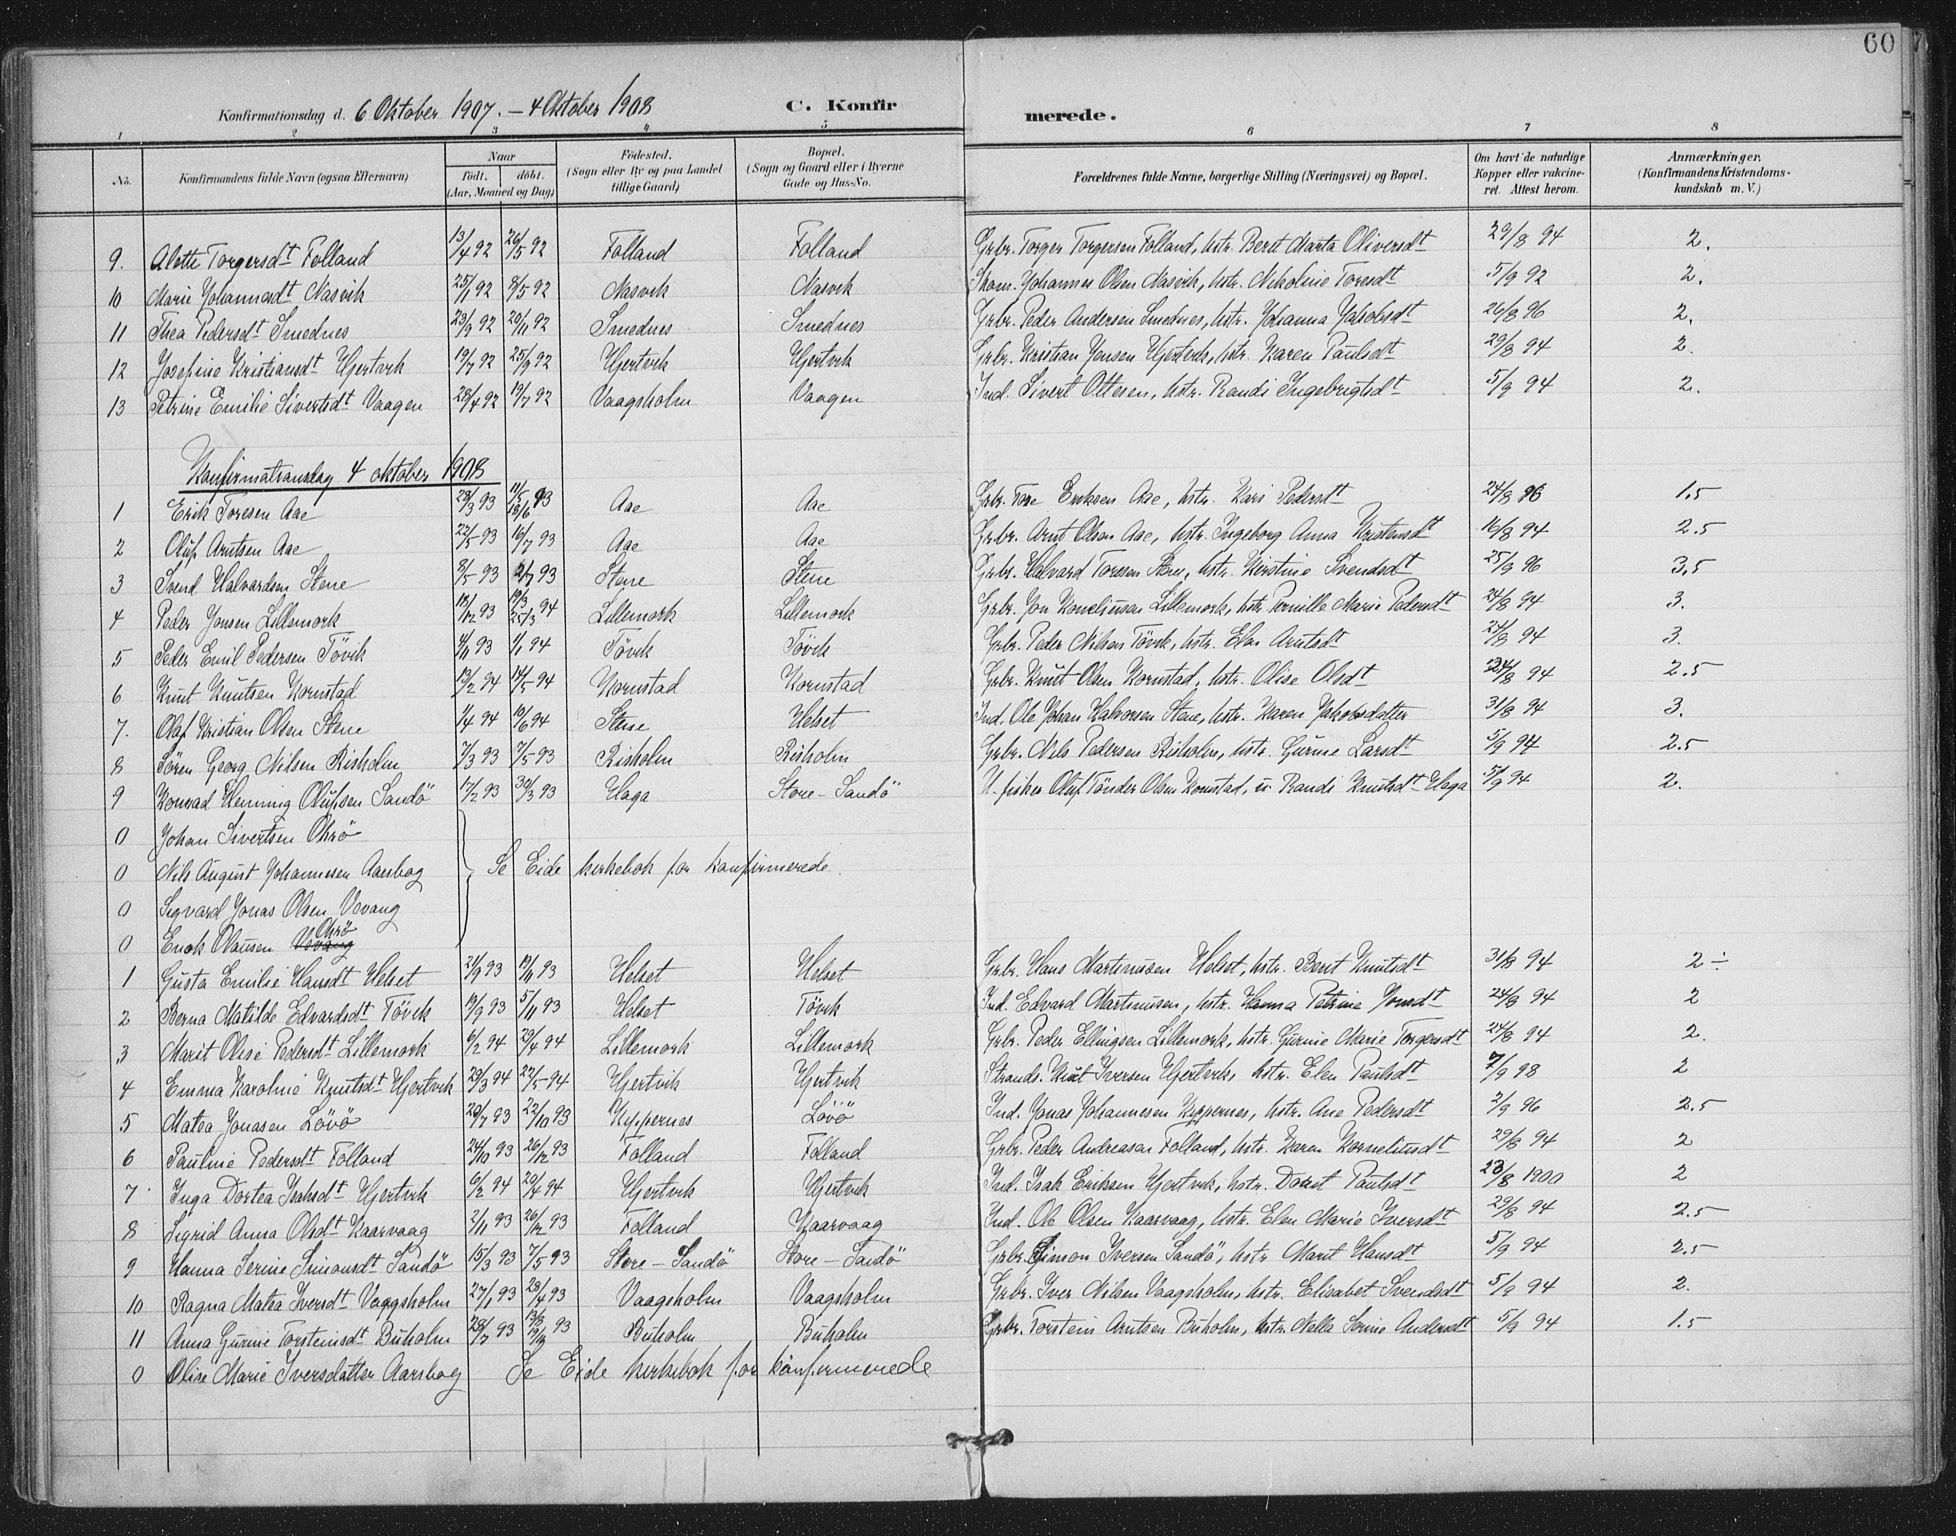 60
Konfirmationsdag d. 6 Oktober 1907. – 4 Oktober 1908 C. Konfirmerede.
1 2 3 4 5 6 7 8
No. Konfirmandens fulde Navn (ogsaa Efternavn) Naar født. døbt. (Aar, Maaned og Dag) Fødested. (Sogn eller By og paa Landet tillige Gaard) Bopæl. (Sogn og Gaard eller i Byerne Gade og Hus-No. Forældrenes fulde Navne, borgerlige Stilling (Næringsvei) og Bopæl. Om havt de naturlige Kopper eller vakcineret. Attest herom. Anmærkninger. (Konfirmandens Kristendomskundskab m. V.)
9. Alette Torgersdt Folland 13/4 92 26/5 92 Folland Folland Grbr. Torger Torgersen Folland, hstr. Berit Marta Oliversdt 29/8 94 2.
10 Marie Johannesdt Nasvik 25/1 92 8/5 92 Nasvik Nasvik Johannes Olsen Nasvik, hstr. Nikoline Toresdt 5/9 92 2.
11 Thea Pedersdt Smednes 23/9 92 20/11 92 Smednes Smednes Grbr. Peder Andersen Smednes, hstr. Johanna Jakobsdt 26/8 96 2.
12 Josefine Kristiansdt Hjertvik 19/7 92 25/9 92 Hjertvik Hjertvik Grbr. Kristian Jensen Hjertvik, hstr. Karen Paulsdt 29/8 94 2.
13 Petrine Emilie Sivertsdt Vaagen 28/4 92 19/7 92 Vaagsholm Vaagen Ind. Sivert Ottesen, hstr. Randi Ingebrigtsdt 5/9 94 2.
Konfirmationsdag 4 oktober 1908
1 Erik Toresen Aae 28/3 93 11/5 18/6 93 Aae Aae Grbr. Tore Eriksen Aae, hstr. Kari Pedersdt 24/8 96 1.5
2 Oluf Arntsen Aae 22/5 93 16/7 93 Aae Aae Grbr. Arnt Olsen Aae, hstr. Ingeborg Anna Kristensdt 16/8 94 2.5
3 Svend Halvardsen Stene 8/5 93 2/7 93 Stene Stene Grbr. Halvard Toresen Stene, hstr. Kirstine Svendsdt 25/9 96 3,5
4 Peder Jonsen Lillemork 18/12 93 19/3 25/3 94 Lillemork Lillemork Grbr. Jon Korneliussen Lillemork, hstr. Pernille Marie Pedersdt 24/8 94 3.
5 Peder Emil Pedersen Tövik 4/11 93 1/1 94 Tövik Tövik Grbr. Peder Nilsen Tövik, hstr. Elen Arntsdt 24/8 94 3.
6 Knut Knutsen Kornstad 13/2 94 14/5 94 Kornstad Kornstad Grbr. Knut Olsen Kornstad, hstr. Olise Olsdt 24/8 94 2.5
7. Olaf Kristian Olsen Stene 1/4 94 10/6 94 Stene Helset Ind. Ole Johan Halvorsen Stene, hstr. Karen Jakobsdatter 31/8 94 3.
8 Sören Georg Nilsen Risholm 7/3 93 7/5 93 Risholm Risholm Grbr. Nils Pedersen Risholm, hstr. Gurine Larsdt 5/9 94 2.5
9 Konrad Henning Olufsen Sandö 17/2 93 30/3 93 Haga Store-Sandö U. fisker Olaf Tönder Olsen Kornstad, u. Randi Knutsdt Haga 5/9 94 2.
0 Johan Sivertsen Ohrö
0 Nils August Johannesen Aarsbog Se Eide kirkebok for konfirmerede.
0 Sigvard Jonas Olsen Vevang
0 Enok Olausen Vevang Ohrö
1 Gusta Emilie Hansdt Helset 21/9 93 19/11 93 Helset Helset Grbr. Hans Martinusen Helset, hstr. Berit Knutsdt 31/8 94 2 ÷
2 Berna Matilde Edvardsdt Tövik 19/9 93 5/11 93 Helset Tövik Ind. Edvard Martinusen, hstr. Hanna Petrine Jonsdt 24/8 94 2
3 Marit Olise Pedersdt Lillemork 6/2 94 29/4 94 Lillemork Lillemork Grbr. Peder Ellingsen Lillemork, hstr. Gurine Marie Torgersdt 24/8 94 2.
4 Emma Karoline Knutsdt Hjertvik 29/3 94 27/5 94 Hjertvik Hjertvik Strands. Knut Iversen Hjertvik, hstr. Elen Paulsdt 7/9 98 2
5 Matea Jonasen Lövö 20/7 93 22/10 93 Kyppernes Lövö Ind. Jonas Johannesen Kyppernes, hstr. Ane Pedersdt 2/9 96 2.5
6 Pauline Pedersdt Folland 24/10 93 26/12 93 Folland Folland Grbr. Peder Andreasen Folland, hstr. Karen Korneliusdt 29/8 94 2
7. Inga Dortea Isaksdt Hjertvik 6/2 94 20/4 94 Hjertvik Hjertvik Ind. Isak Eriksen Hjertvik, hstr. Doret Paulsdt 23/8 1900 2
8 Sigrid Anna Olsdt Kaarvaag 2/11 93 26/12 93 Folland Kaarvaag Ind. Ole Olsen Kaarvaag, hstr. Elen Marie Iversdt 29/8 94 2.5
9 Hanna Serine Simonsdt Sandö 15/3 93 7/5 93 Store-Sandö Store-Sandö Grbr. Simon Iversen Sandö, hstr. Marit Hansdt 5/9 94 2.5
10 Ragna Matea Iversdt Vaagsholm 27/1 93 23/4 93 Vaagsholm Vaagsholm Grbr. Iver Nilsen Vaagsholm, hstr. Elisabet Svendsdt 5/9 94 2.
11 Anna Gurine Torsteinsdt Buholm 28/7 93 93 Buholm Buholm Grbr. Torstein Arntsen Buholm, hstr. Nella Serine Andersdt 5/9 94 1.5
0 Olise Marie Iversdatter Aarsbog Se Eide kirkebok for konfirmerede